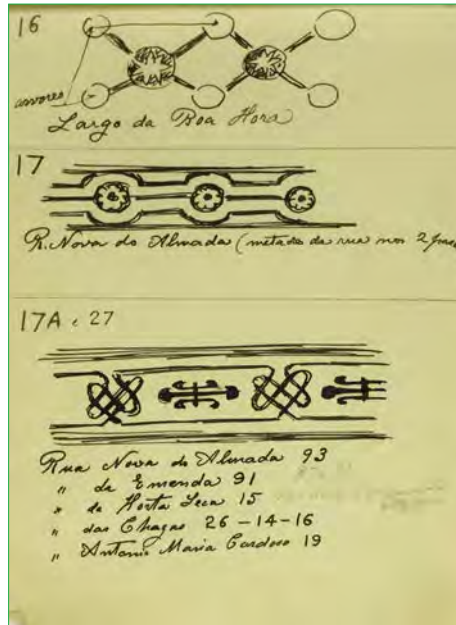 16
arvores
Largo da Boa Hora
17
R. Nova do Almada (metade da rua nos 2
17A e 27
Rua Nova do Almada 93
" da Emenda 91
" da Horta Seca 15
" das Chagas 26 - 14 - 16
" Antonio Maria Cardoso 19